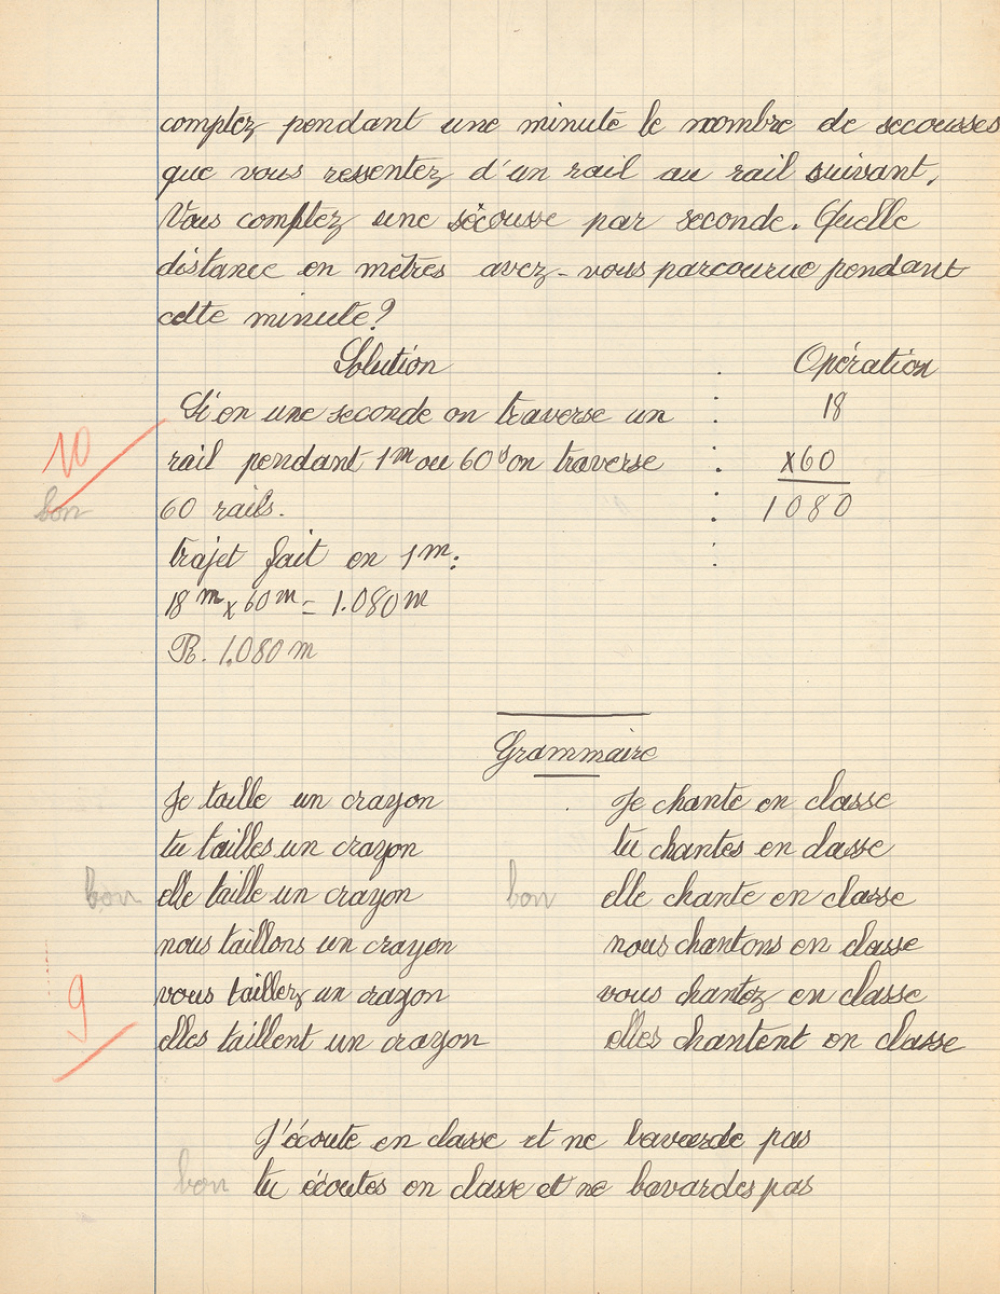 comptez pendant une minute le nombre de secousses
que vous ressentez d'un rail au rail suivant.
Vous comptez une sécousse par seconde. Quelle
distance en mètres avez-vous parcourue pendant
cette minute?
Solution : Opération
Si en une seconde on traverse un : 18
10
rail pendant 1m ou 60s on traverse : x60
bon
60 rails. : 1080
trajet fait en 1m: :
18m x 60m = 1.080m
R. 1.080m
Grammaire
Je taille un crayon Je chante en classe
tu tailles un crayon tu chantes en classe
bon elle taille un crayon bon elle chante en classe
nous taillons un crayon nous chantons en classe
9 vous taillez un crayon vous chantez en classe
elles taillent un crayon elles chantent en classe
J'écoute en classe et ne bavarde pas
bon tu écoutes en classe et ne bavardes pas